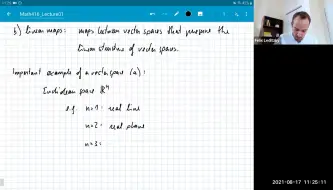 Math416_Lecture01
b) linear maps: maps between vector spaces that preserve the
linear structure of vector spaces.
Important example of a vector space (a):
Euclidean space ℝⁿ
e.g. n=1: real line
n=2: real plane
n=3:
Felix Leditzky
2021-08-17 11:25:11